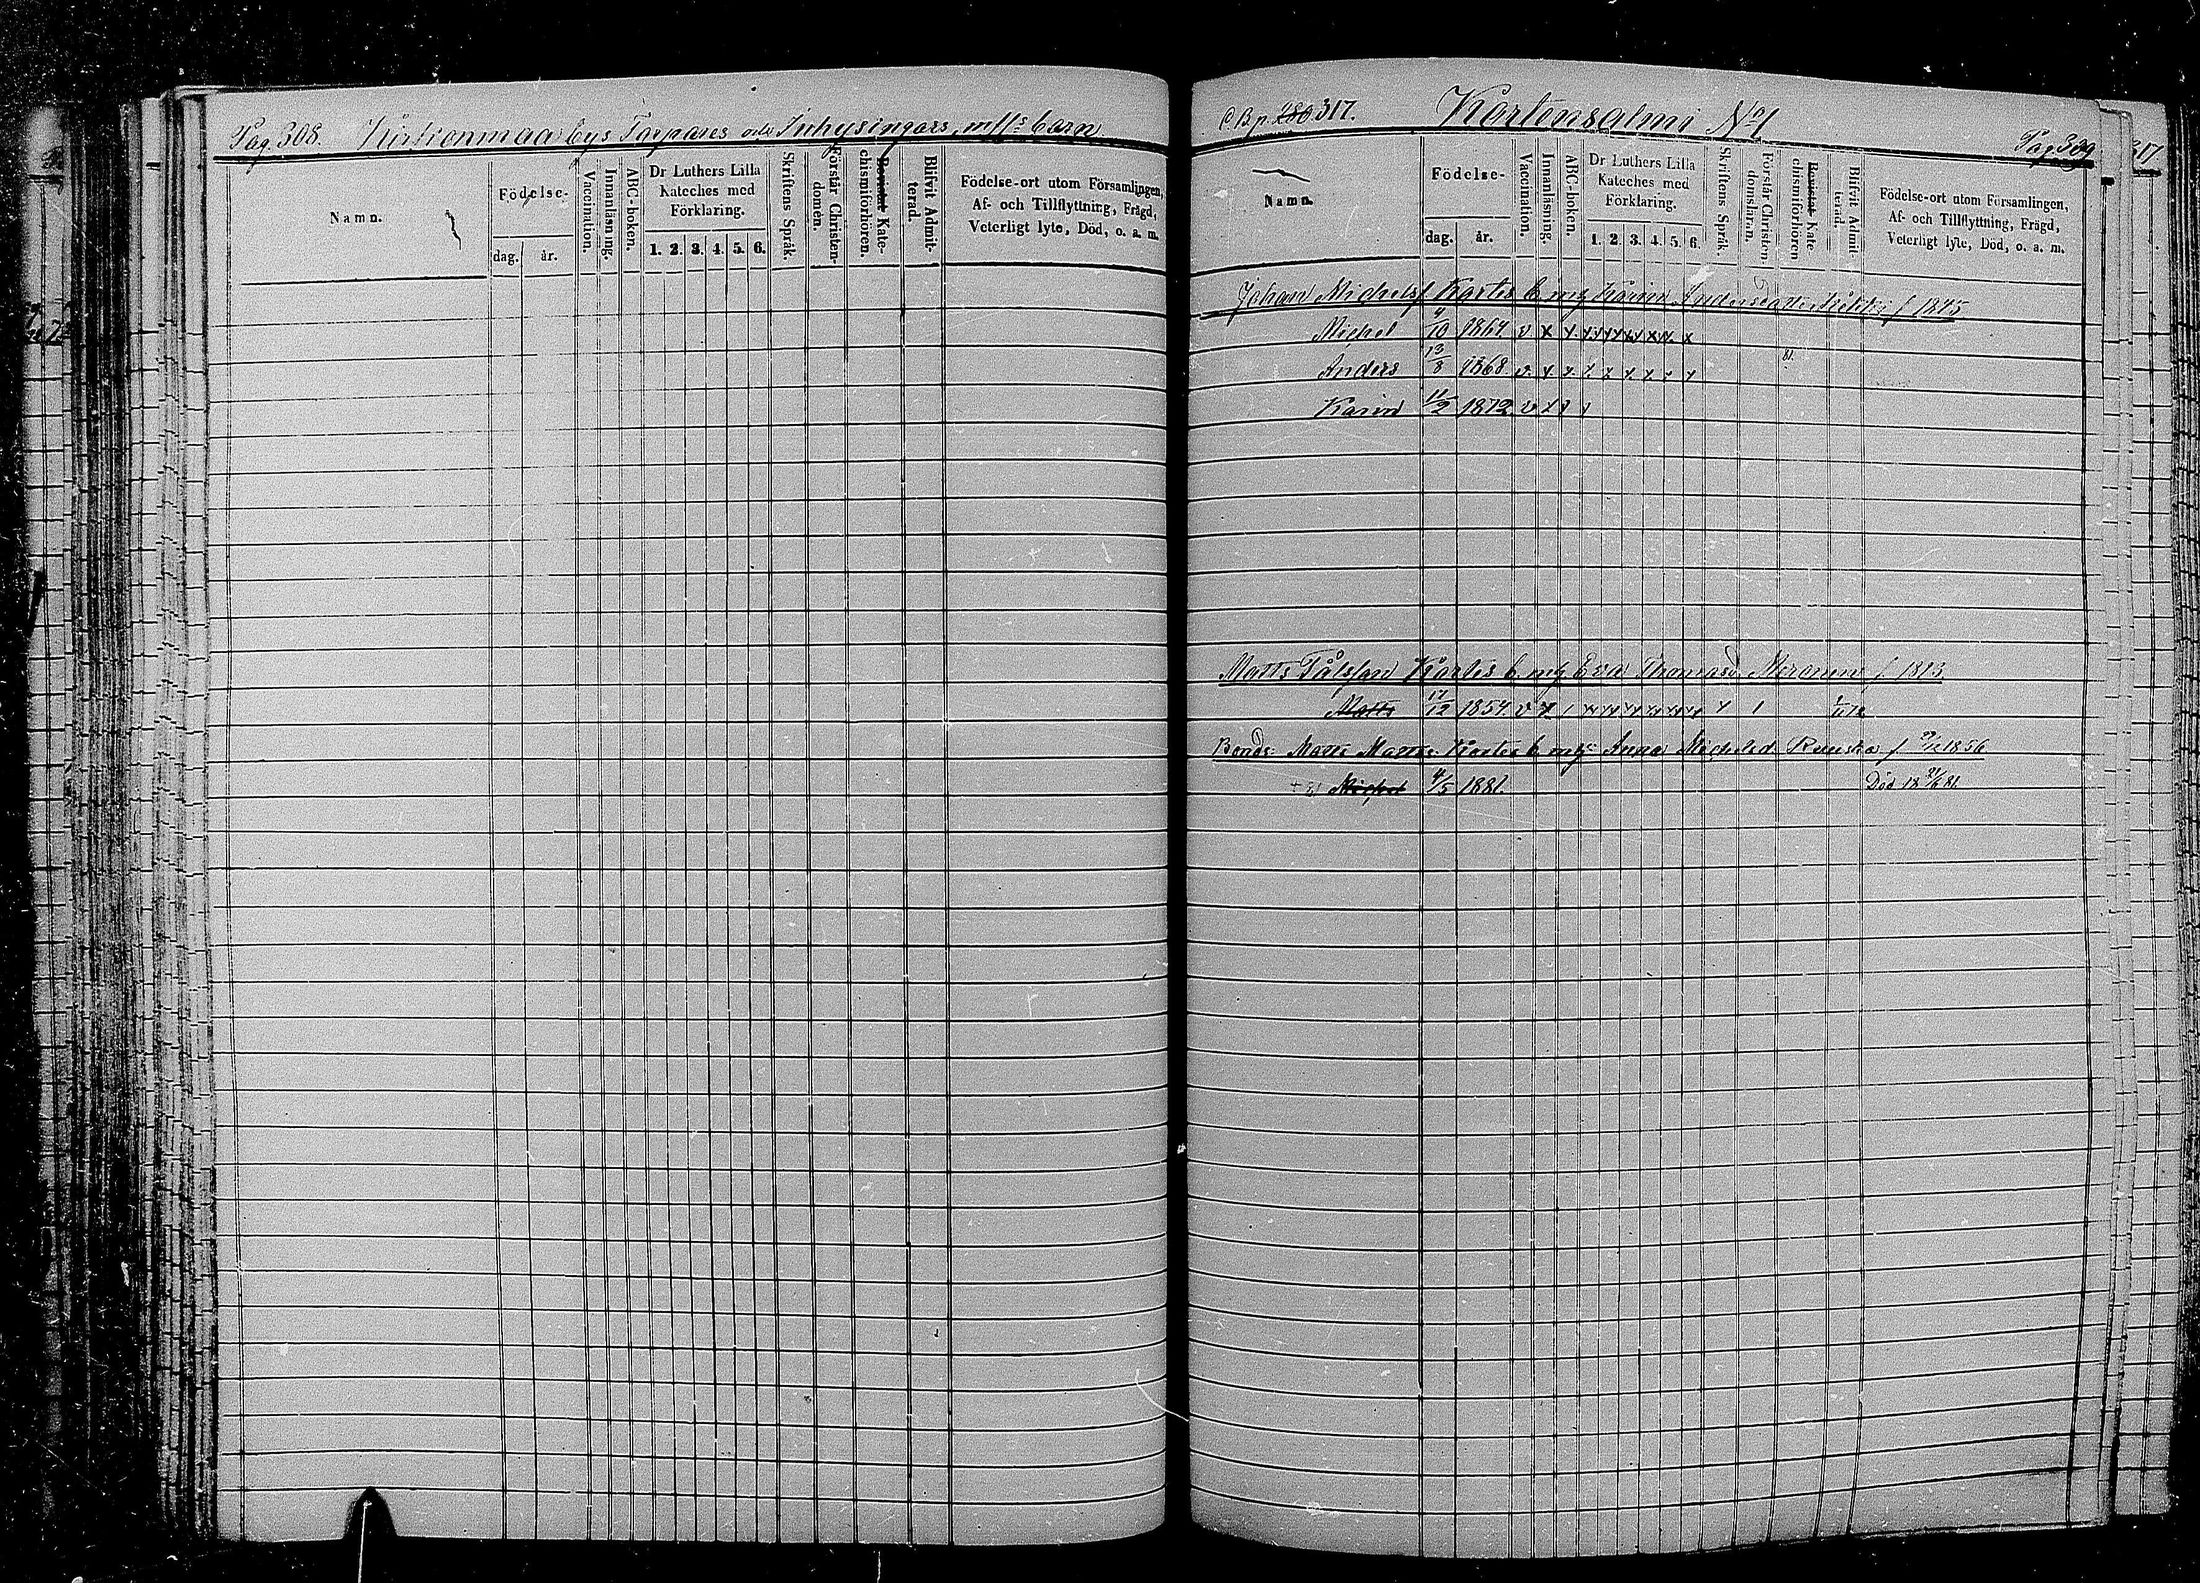 Pag. 308. bys Torpares och Inhysingars, m fls barn
Namn.
Födelse-
dag. år.
Vaccination.
Innanläsning.
ABC-boken.
Dr Luthers Lilla
Kateches med
Förklaring.
1. 2. 3. 4. 5. 6.
Skriftens Språk.
Förstår Christen-
domen.
Bevistat Kate-
chismiförhören.
Blifvit Admit-
terad.
Födelse-ort utom Församlingen,
Af- och Tillflyttning, Frägd,
Veterligt lyte, Död, o. a. m.
C.B.p. 280 317. Kortensalmi No 1
Pag. 309
317
Namn.
Födelse-
dag. år.
Vaccination.
Innanläsning.
ABC-boken.
Dr Luthers Lilla
Kateches med
Förklaring.
1. 2. 3. 4. 5. 6.
Skriftens Språk.
Förstår Christen
domsläran.
Bevistat Kate
chismiförhören
Blifvit Admit
terad.
Födelse-ort utom Församlingen,
Af- och Tillflyttning, Frägd,
Veterligt lyte, Död, o. a. m.
Johan Michelsf Kortes b. m Karin Andersdotter f 1845
Michel 4/10 1864. v x x x x x x x x x
Anders 13/8 1868 v. x x x x x x x x 81.
Karin 11/2 1872 v x x
Matts Pålsson Kortes b. m Eva Thomasd. f 1813
Matts 17/12 1854. v x
Bonds. Matts Matts. Kortes b. m Anna Michelsd f 1856
Michel 4/5 1881. Död 18 21/6 81.